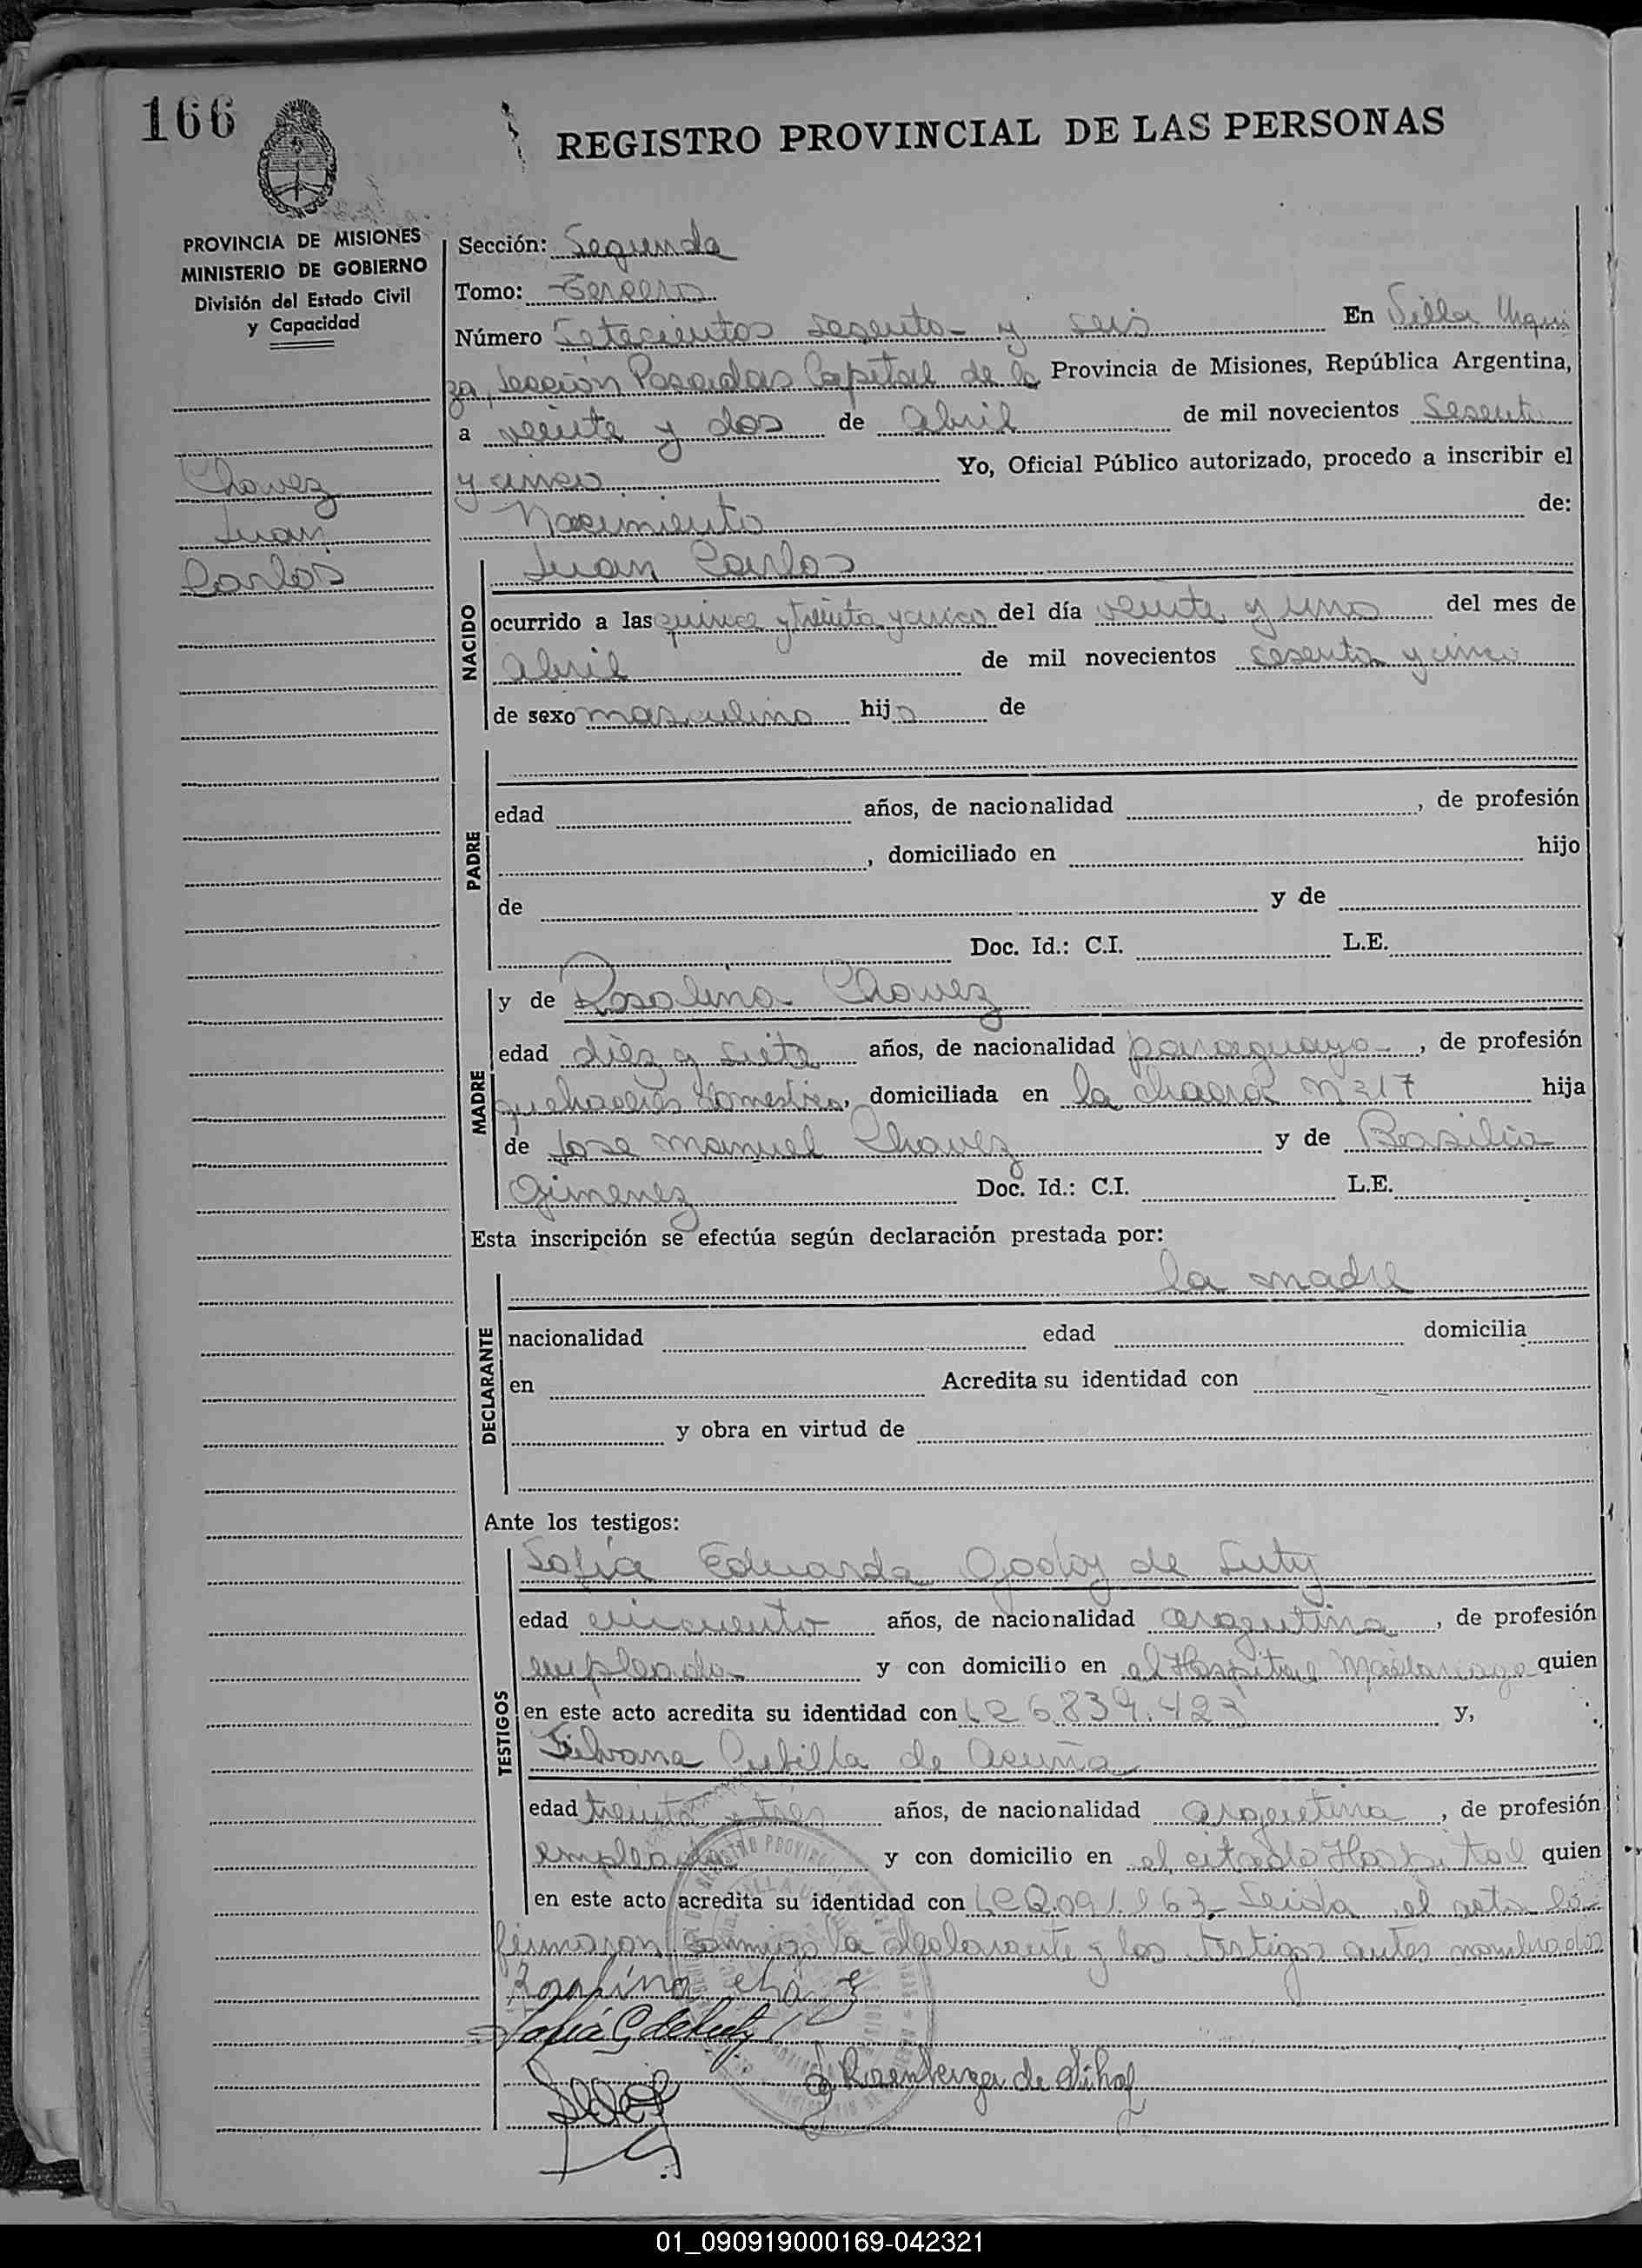 166
REGISTRO PROVINCIAL DE LAS PERSONAS
PROVINCIA DE MISIONES
MINISTERIO DE GOBIERNO
División del Estado Civil
y Capacidad
Chavez
Juan
Carlos
Sección: Segunda
Tomo: Tercero
Número Setecientos sesenta y seis En Villa Urqui
za, Sección Posadas Capital de la Provincia de Misiones, República Argentina,
a veinte y dos de abril de mil novecientos Sesenta
y cinco Yo, Oficial Público autorizado, procedo a inscribir el
Nacimiento de:
NACIDO
Juan Carlos
ocurrido a las quince y treinta y cinco del día veinte y uno del mes de
abril de mil novecientos sesenta y cinco
de sexo masculino hijo de
PADRE
edad años, de nacionalidad , de profesión
, domiciliado en hijo
de y de
Doc. Id.: C.I. L.E.
MADRE
y de Rosalina Chavez
edad diez y siete años, de nacionalidad paraguaya, de profesión
quehaceres domesticos, domiciliada en la chacra Nº 217 hija
de Jose Manuel Chavez y de Basilia
Gimenez Doc. Id.: C.I. L.E.
Esta inscripción se efectúa según declaración prestada por:
DECLARANTE
la madre
nacionalidad edad domicilia
en Acredita su identidad con
y obra en virtud de
Ante los testigos:
TESTIGOS
Sofía Eduarda Godoy de
edad cincuenta años, de nacionalidad argentina, de profesión
empleada y con domicilio en el Hospital Madariaga quien
en este acto acredita su identidad con LC 6.839.423 y,
Silvana Cubilla de Acuña
edad treinta y tres años, de nacionalidad argentina, de profesión
empleada y con domicilio en el citado Hospital quien
en este acto acredita su identidad con LC Leida el acta la
firmaron conmigo la declarante y los testigos antes nombrados
Rosalina
Sofía G de
Rosenberger de
01_090919000169-042321